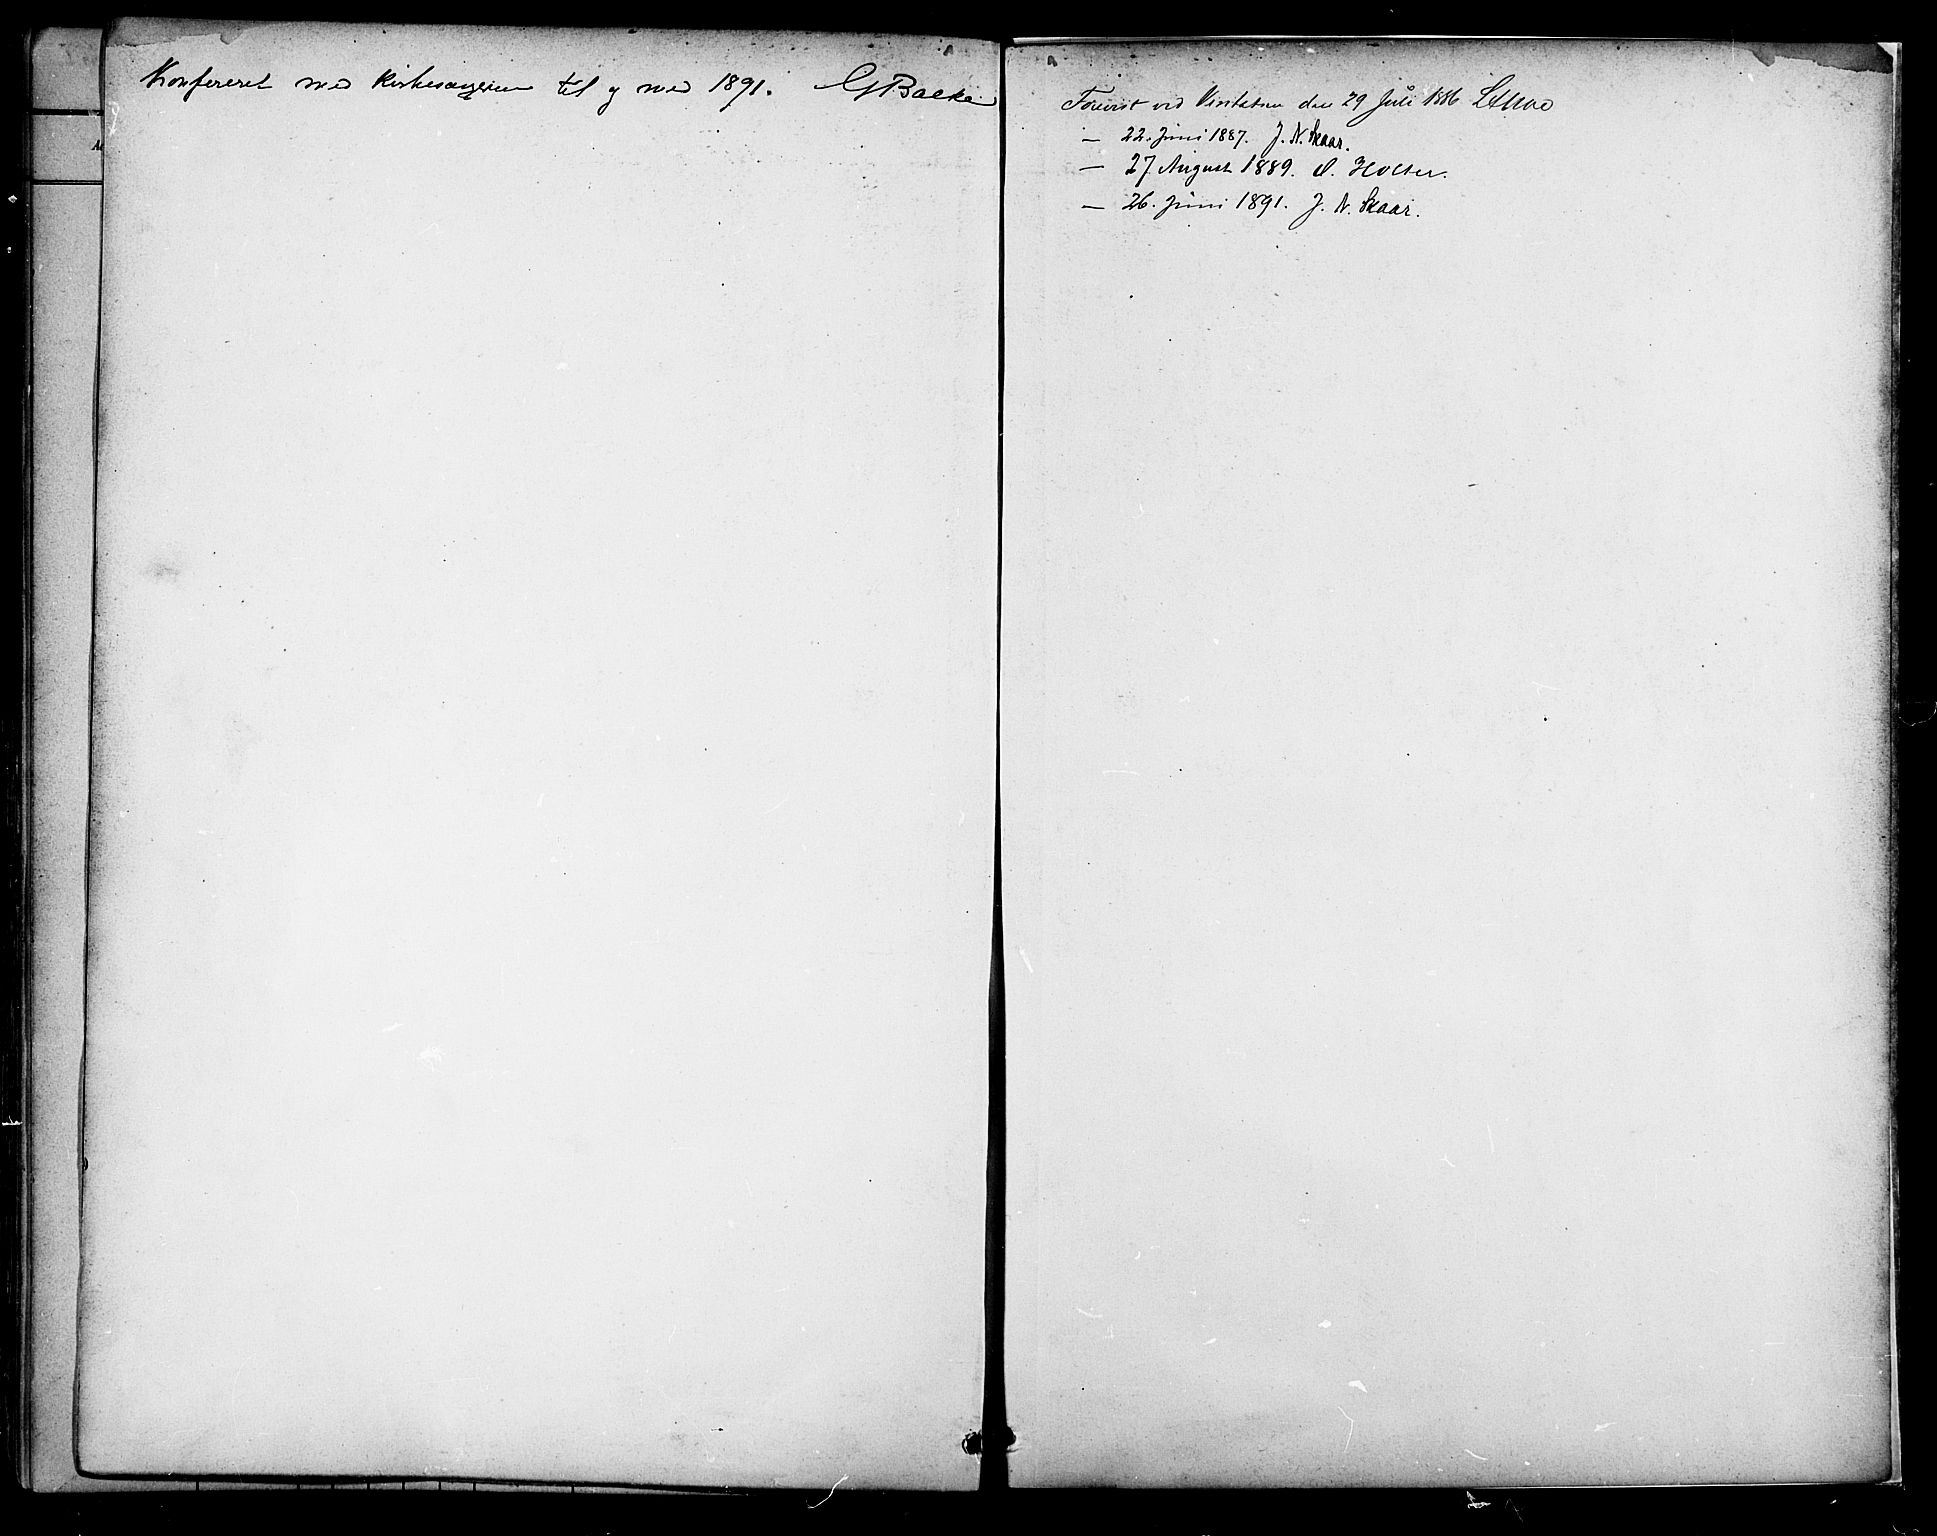 Konfereret med Kirkesangeren til og med 1891. G Balke
Forevist ved Visitatsen den 29 Juli 1886
— 22. Juni 1887. J. N. Skaar.
— 27 August 1889. O. Holter.
— 26. Juni 1891. J. N. Skaar.